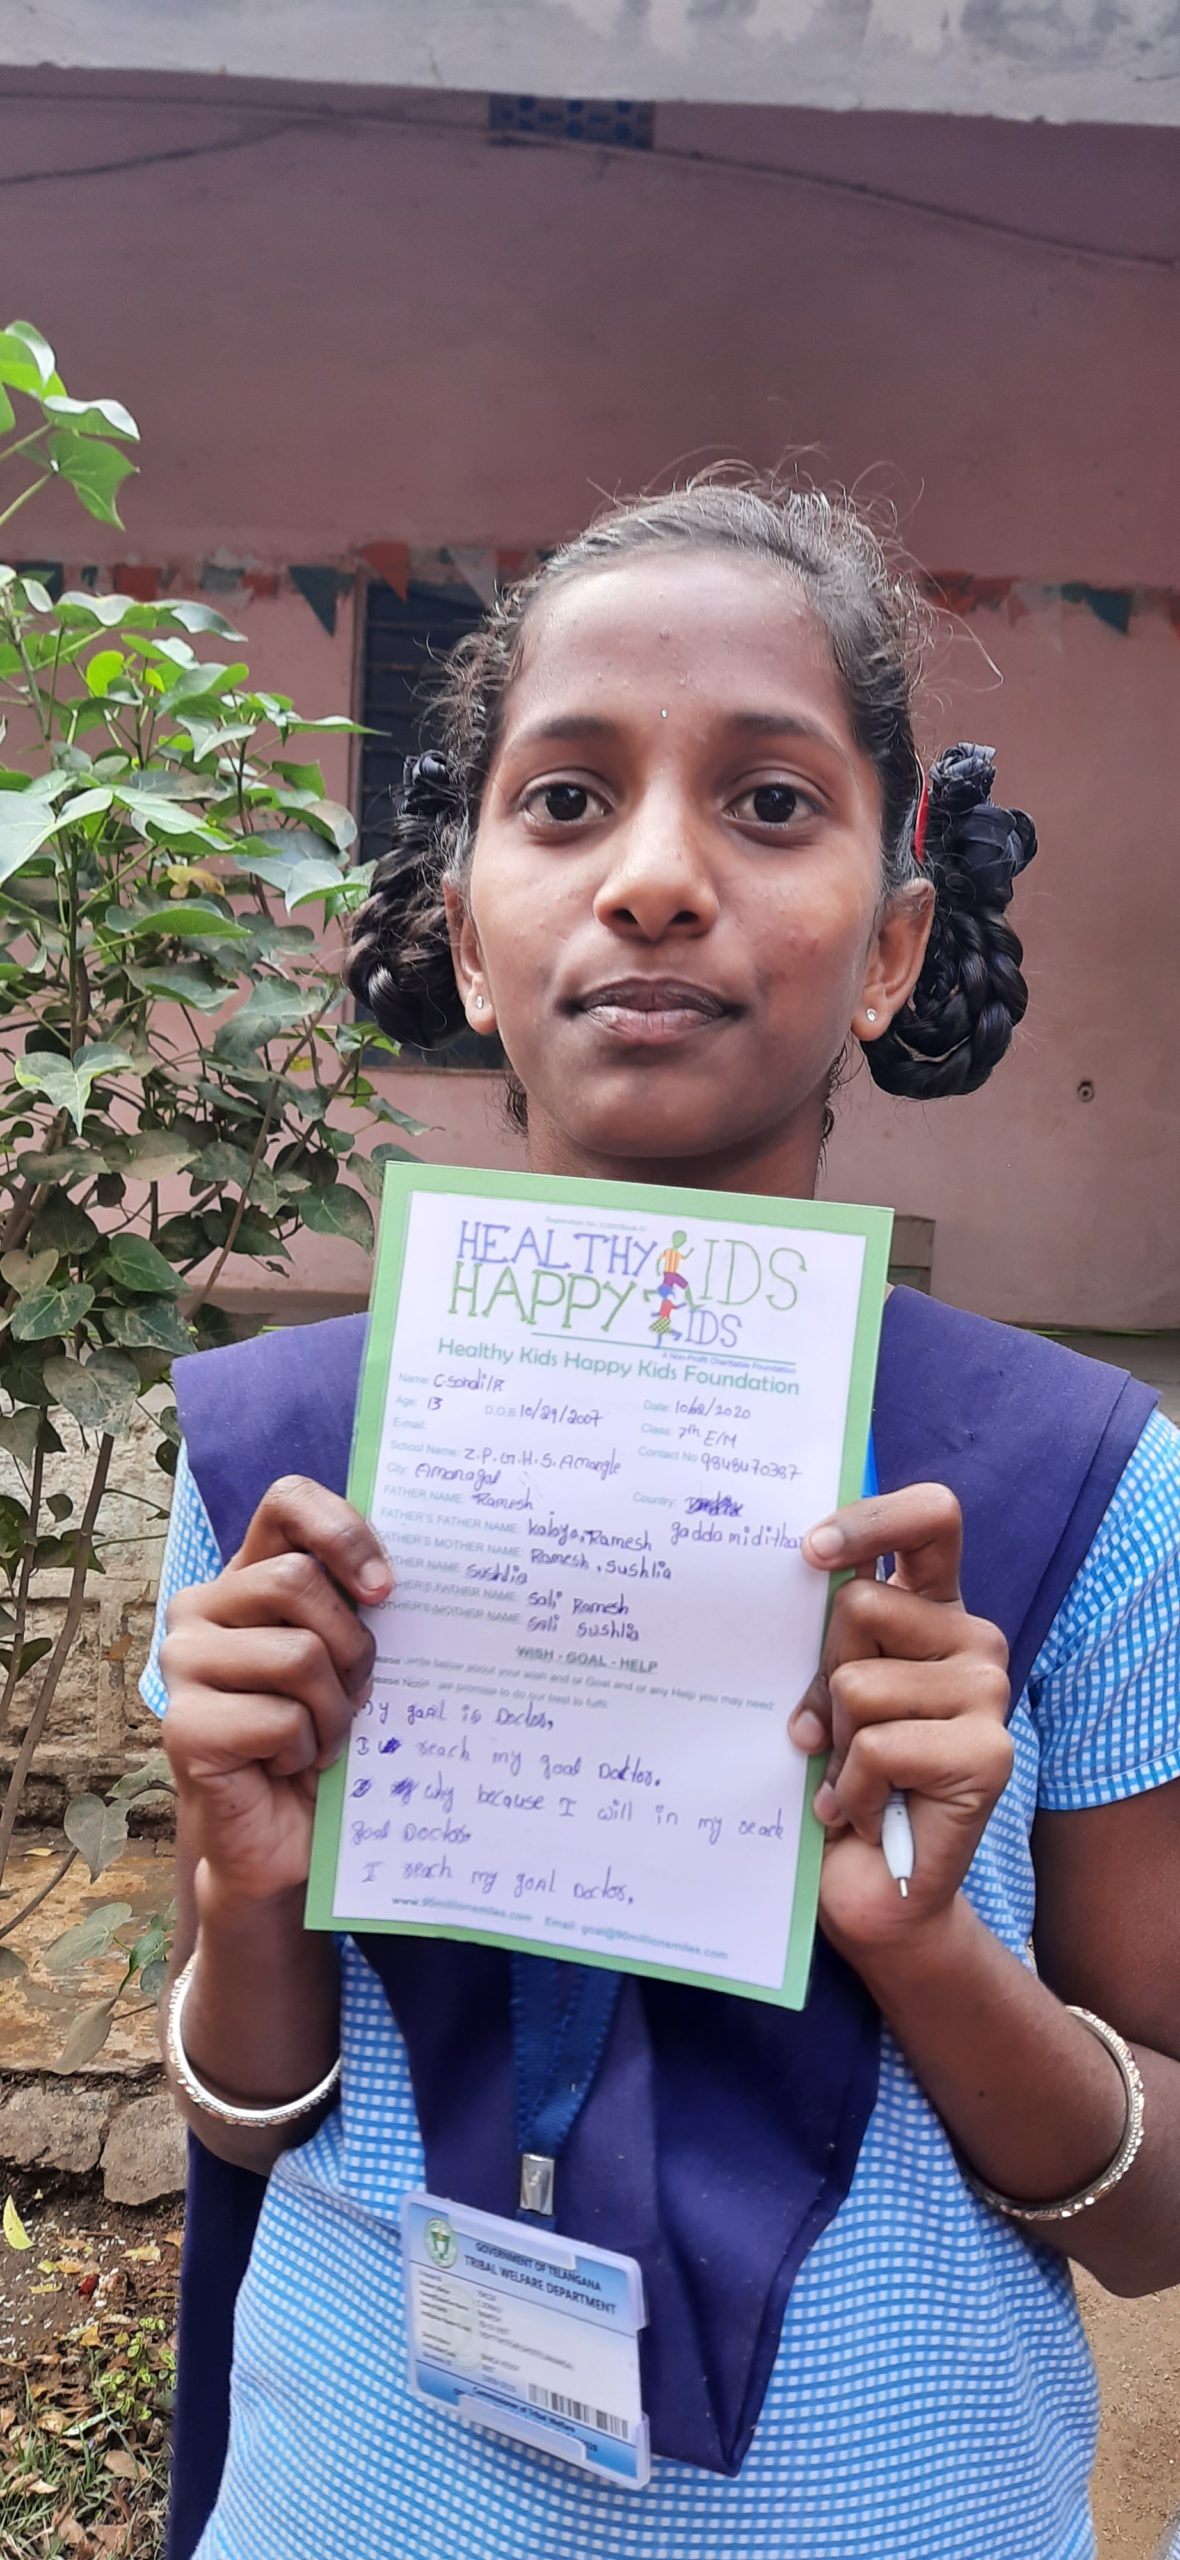 HEALTHY KIDS
HAPPY KIDS
A Non-Profit Charitable Foundation
Healthy Kids Happy Kids Foundation
Name:
Age: 13 D.O.B 10/29/2007 Date:
E-mail: Class: 7th E/M
School Name: Z.P.G.H.S. Amangle Contact No 9848470387
City: Amanagal
FATHER NAME: Ramesh Country:
FATHER'S FATHER NAME: Ramesh
FATHER'S MOTHER NAME: Ramesh, Sushlia
NAME Sushlia
FATHER NAME: Sali Ramesh
MOTHER NAME: Sali Sushlia
WISH - GOAL - HELP
write below about your wish and or Goal and or any Help you may need:
Note - we promise to do our best to fulfil
my goal is Doctor,
I reach my goal Doctor.
why because I will in my reach
goal Doctor.
I reach my goal Doctor,
www.90millionsmiles.com Email: goal@90millionsmiles.com
GOVERNMENT OF TELANGANA
TRIBAL WELFARE DEPARTMENT
Commissioner of Tribal Welfare